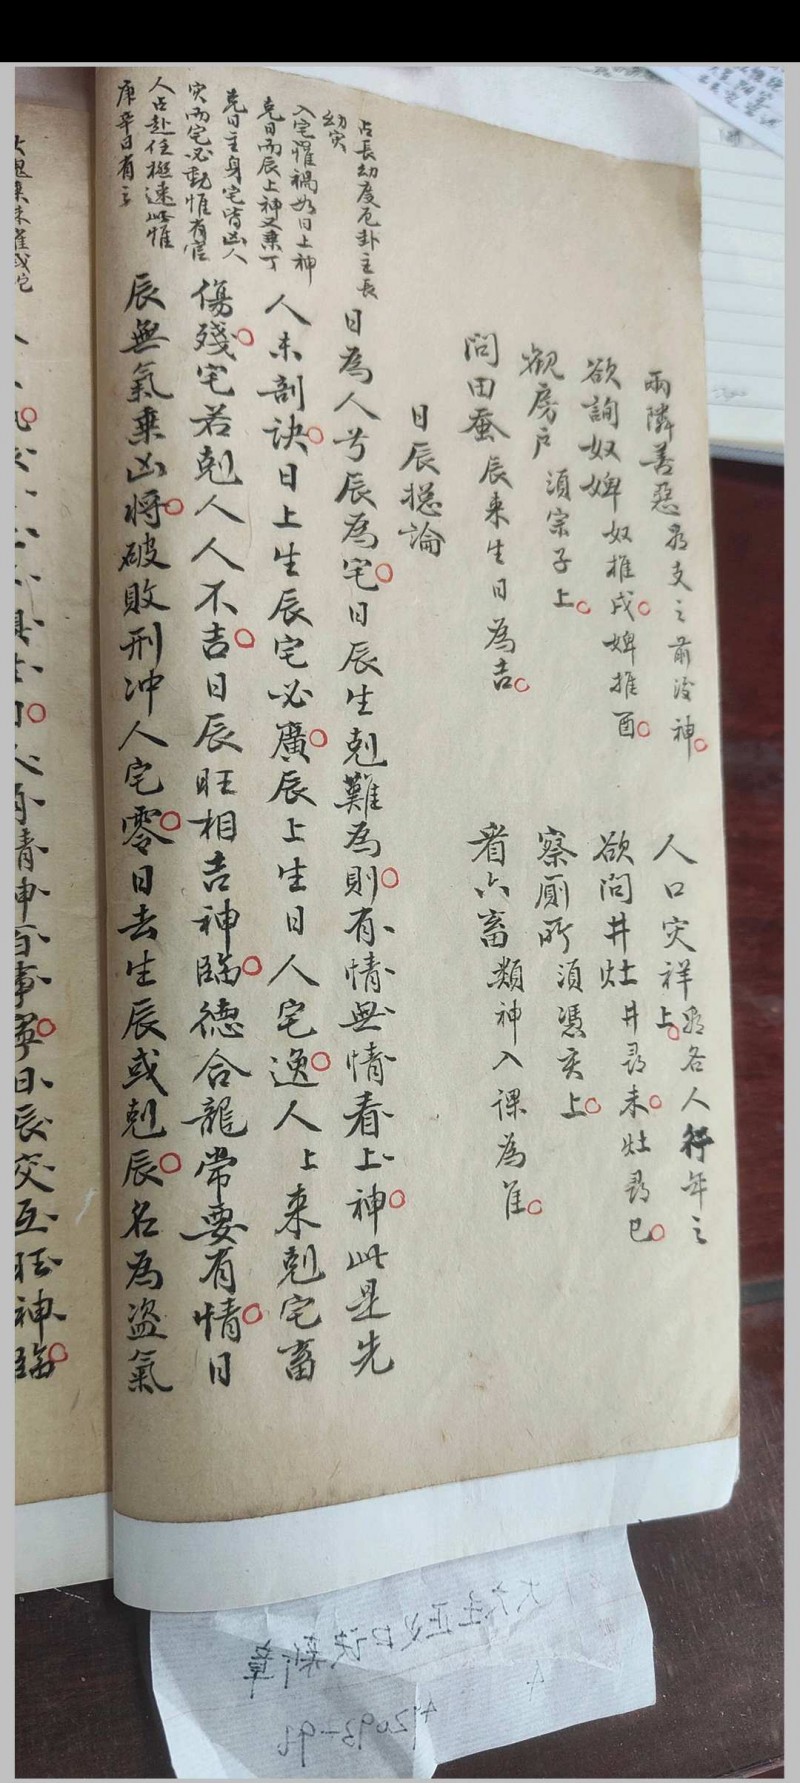 兩隣善惡尋支之前後神
人口灾祥尋各人行年之上
欲詢奴婢奴推戌婢推酉
欲問井灶井尋未灶尋巳
觀房戶須宗子上
察厠所須憑亥上
問田蚕辰来生日為吉
看六畜類神入課為准
日辰捴論
占長幼度厄卦主長幼灾
日為人兮辰為宅日辰生剋難為則有情無情看上神此是先
入宅懼禍如日上神
人未剖訣日上生辰宅必廣辰上生日人宅逸人上来剋宅畜
克日而辰上神又乘丁
克日主身宅皆凶人
傷殘宅若剋人人不吉日辰旺相吉神臨德合龍常要有情日
灾而宅必動惟有官
人占赴任極速此惟
庚辛日有之
辰無氣乘凶將破敗刑冲人宅零日去生辰或剋辰名為盗氣
情神百事寧日辰交互旺神臨
大六壬正义口诀新章
42093-96